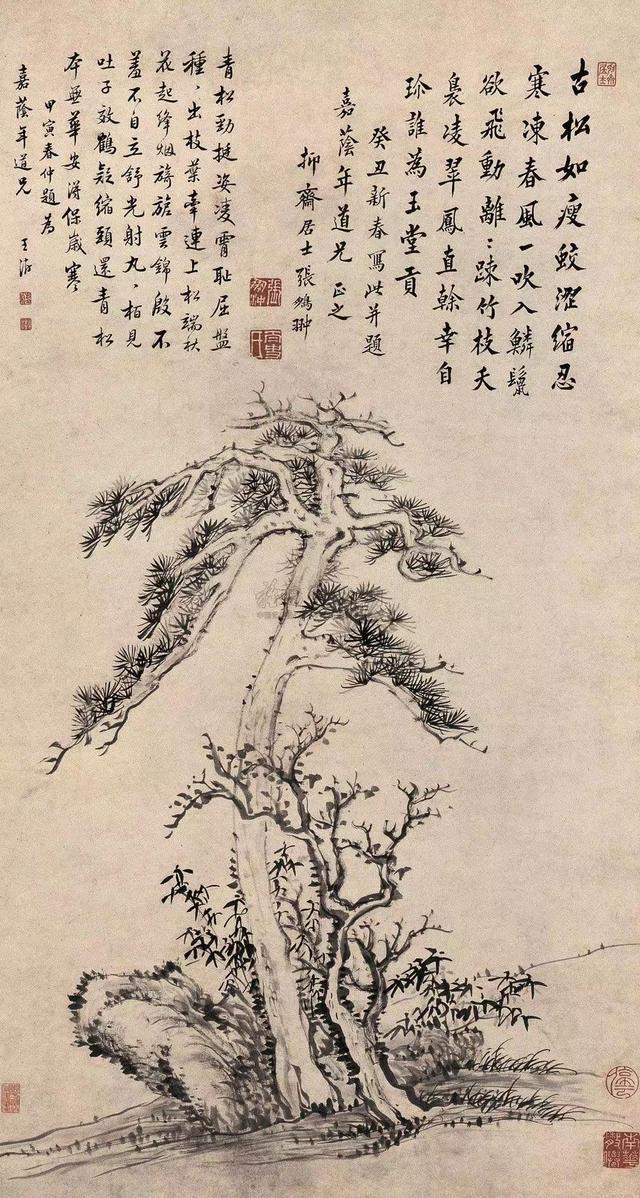 古松如瘦蛟澀縮忍
寒凍春風一吹入鱗鬣
欲飛動離〻疎竹枝夭
裊凌翠鳳直榦幸自
珍誰為玉堂貢
癸丑新春寫此并題
嘉蔭年道兄 正之
抑齋居士張鵬翀
青松勁挺姿凌霄恥屈盤
種〻出枝葉牽連上松端秋
花起絳烟旖旎雲錦殷不
羞不自立舒光射丸〻柏見
吐子效鶴疑縮頸還青松
本無華安得保歲寒
甲寅春仲題為
嘉蔭年道兄 王澍